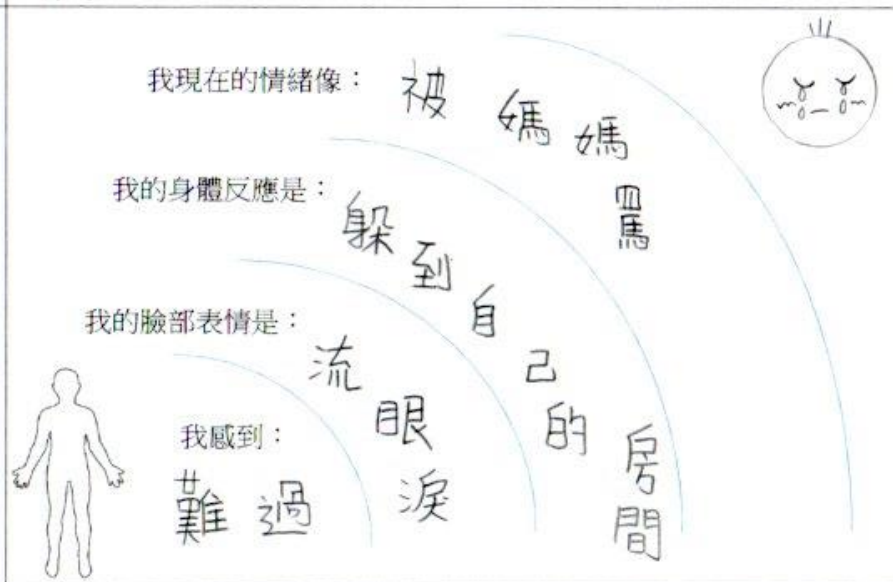 我現在的情緒像：被媽媽罵
我的身體反應是：躲到自己的房間
我的臉部表情是：流眼淚
我感到：難過